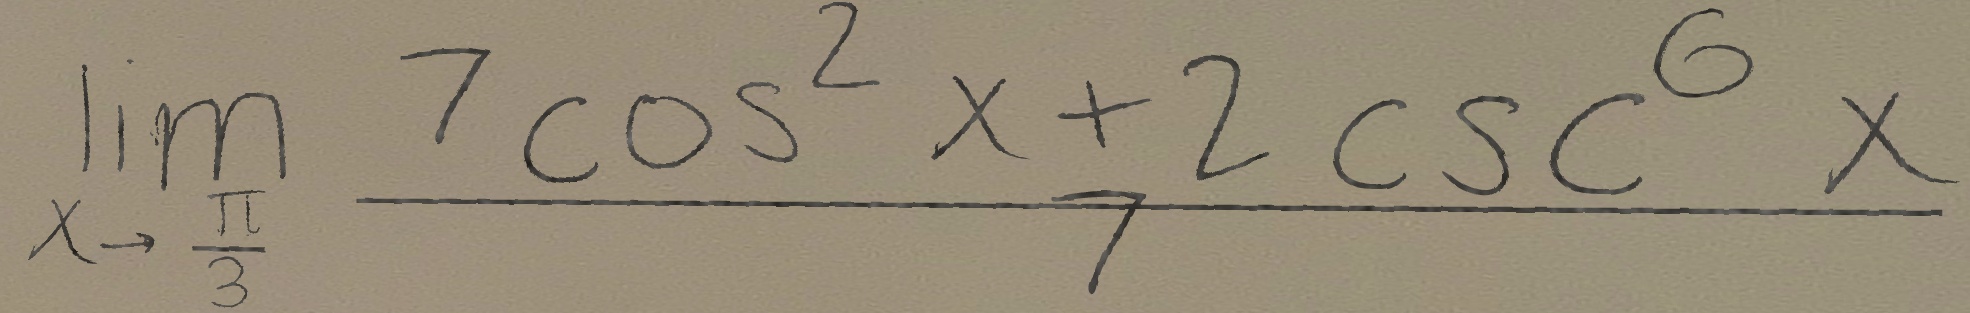 \lim_{x \to \frac{\pi}{3}} \frac{7\cos^2 x + 2\csc^6 x}{7}